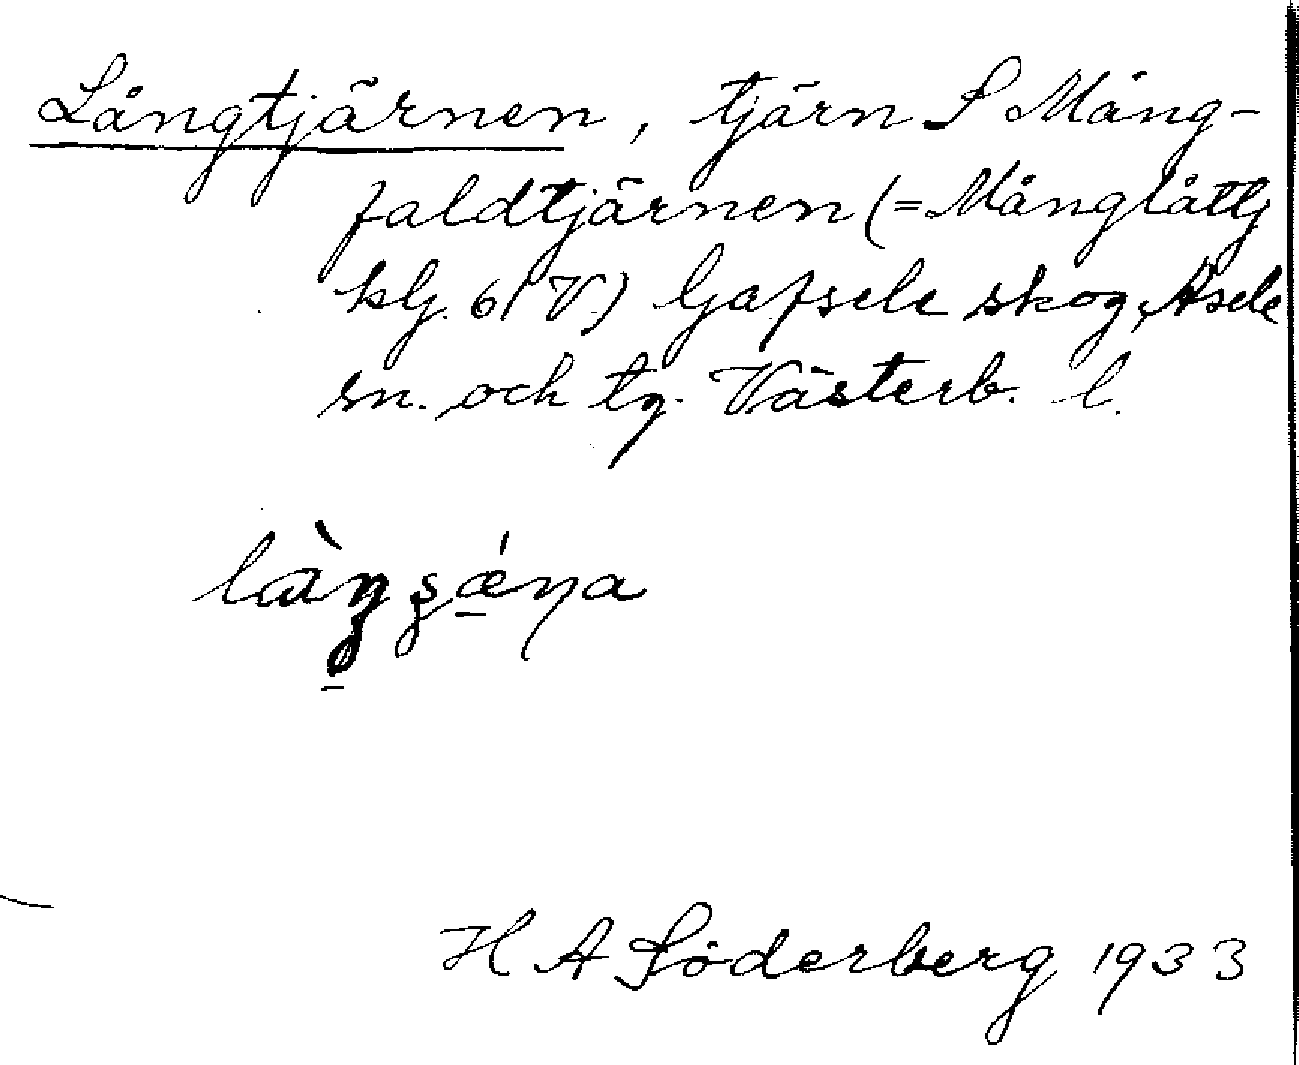 Långtjärnen, tjärn S Mång-
faldtjärnen (= Månglåttj
klj. 61 V) Gafsele skog, Åsele
sn. och tg. Västerb. l.
H A Söderberg 1933